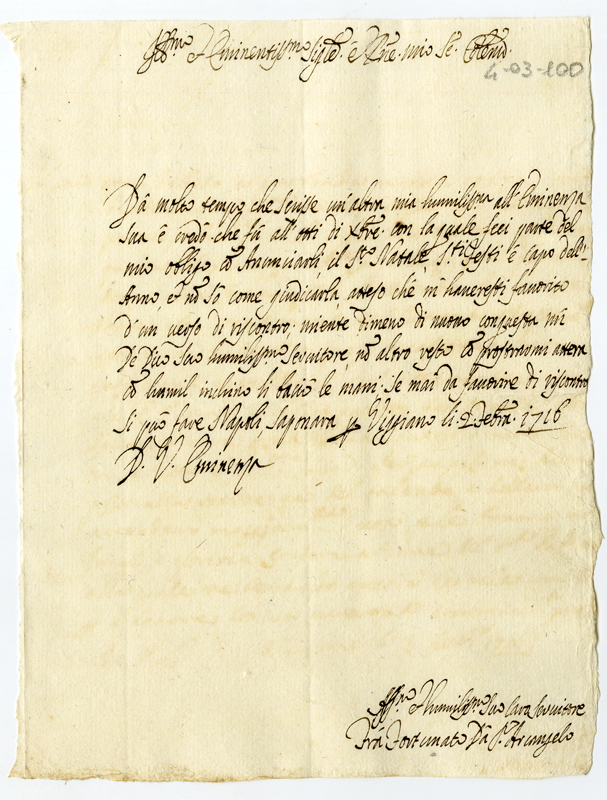 Ill.mo et Eminentiss.mo Sig.re e P.ne mio Se. Colend.
4-03-100
Dà molto tempo che scrisse un'altra mia humiliss.ma all'Eminenza
sua è credo che fù all'otti di Xbre. con la quale feci parte del
mio obligo co Anunciarli il S.to Natale, S.ti festi è capo dell'
Anno, è nō sò come giudicarla atteso che m'haveresti favorito
d'un verso di riscontro, niente dimeno di nuovo conquesta mi
Dedico suo humiliss.mo servitore, nō altro resto cō prostrarmi atterra
cō humil inchino li baciò le mani: se mai da favorire di riscontro
si può fare Napoli, Saponara p Viggiano li 2 Febra. 1716
D. V. Eminenza
Aff.mo et humiliss.mo suo caro servitore
Frà Fortunato Dà S. Arcangelo